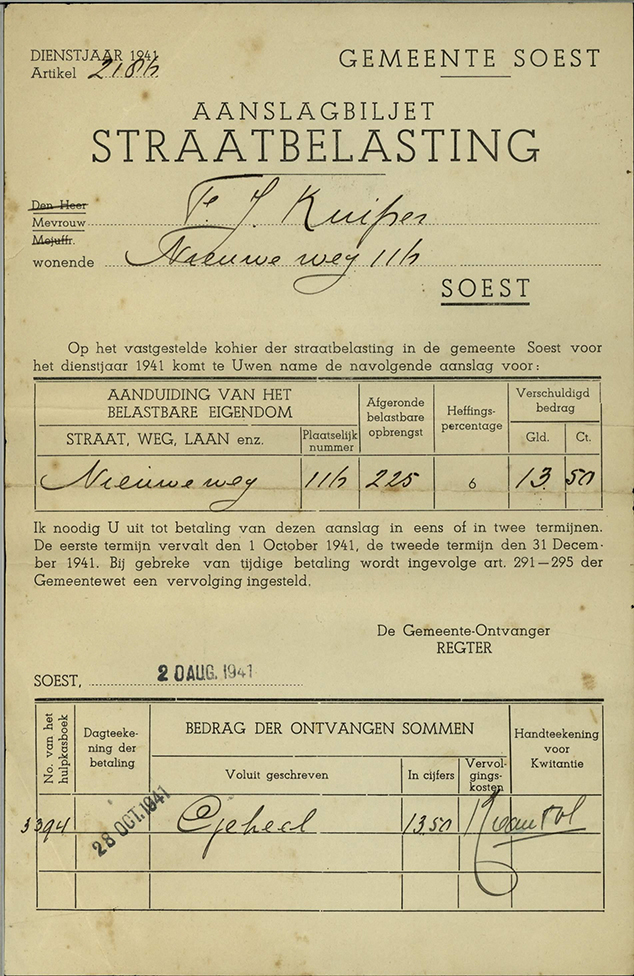 DIENSTJAAR 1941
GEMEENTE SOEST
Artikel
AANSLAGBILJET
STRAATBELASTING
Den Heer
Mevrouw J. Kuiper
Mejuffr.
wonende Nieuwe weg 11b
SOEST
Op het vastgestelde kohier der straatbelasting in de gemeente Soest voor
het dienstjaar 1941 komt te Uwen name de navolgende aanslag voor:
AANDUIDING VAN HET BELASTBARE EIGENDOM
STRAAT, WEG, LAAN enz.
Plaatselijk nummer
Afgeronde belastbare opbrengst
Heffings-percentage
Verschuldigd bedrag
Gld. Ct.
Nieuweweg 11b 225 6 13 50
Ik noodig U uit tot betaling van dezen aanslag in eens of in twee termijnen.
De eerste termijn vervalt den 1 October 1941, de tweede termijn den 31 Decem-
ber 1941. Bij gebreke van tijdige betaling wordt ingevolge art. 291—295 der
Gemeentewet een vervolging ingesteld.
De Gemeente-Ontvanger
REGTER
SOEST, 20 AUG. 1941
No. van het hulpkasboek
Dagteeke-
ning der
betaling
BEDRAG DER ONTVANGEN SOMMEN
Voluit geschreven
In cijfers
Vervol-
gings-
kosten
Handteekening
voor
Kwitantie
3394 28 OCT. 1941 Geheel 13.50